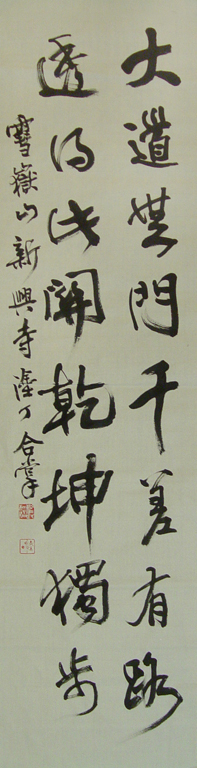 大道無門千差有路
透得此關乾坤獨步
雪嶽山新興寺 合掌